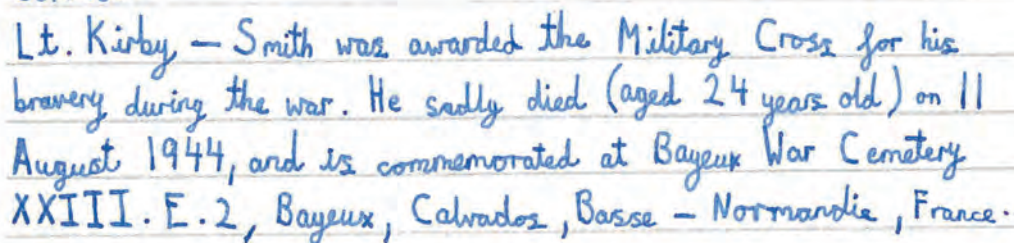 Lt. Kirby – Smith was awarded the Military Cross for his
bravery during the war. He sadly died (aged 24 years old) on 11
August 1944, and is commemorated at Bayeux War Cemetery
XXIII. E. 2, Bayeux, Calvados, Basse – Normandie, France.